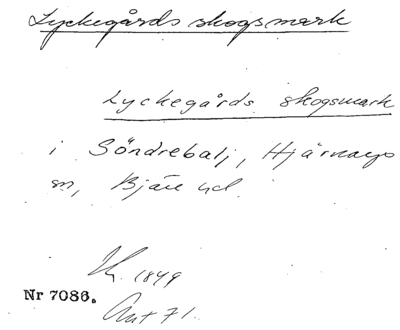 Lyckegårds skogsmark
Lyckegårds skogsmark
i Söndrebalj, Hjärnarps
sn, Bjäre hd.
1849
Nr 7086.
Akt 71.